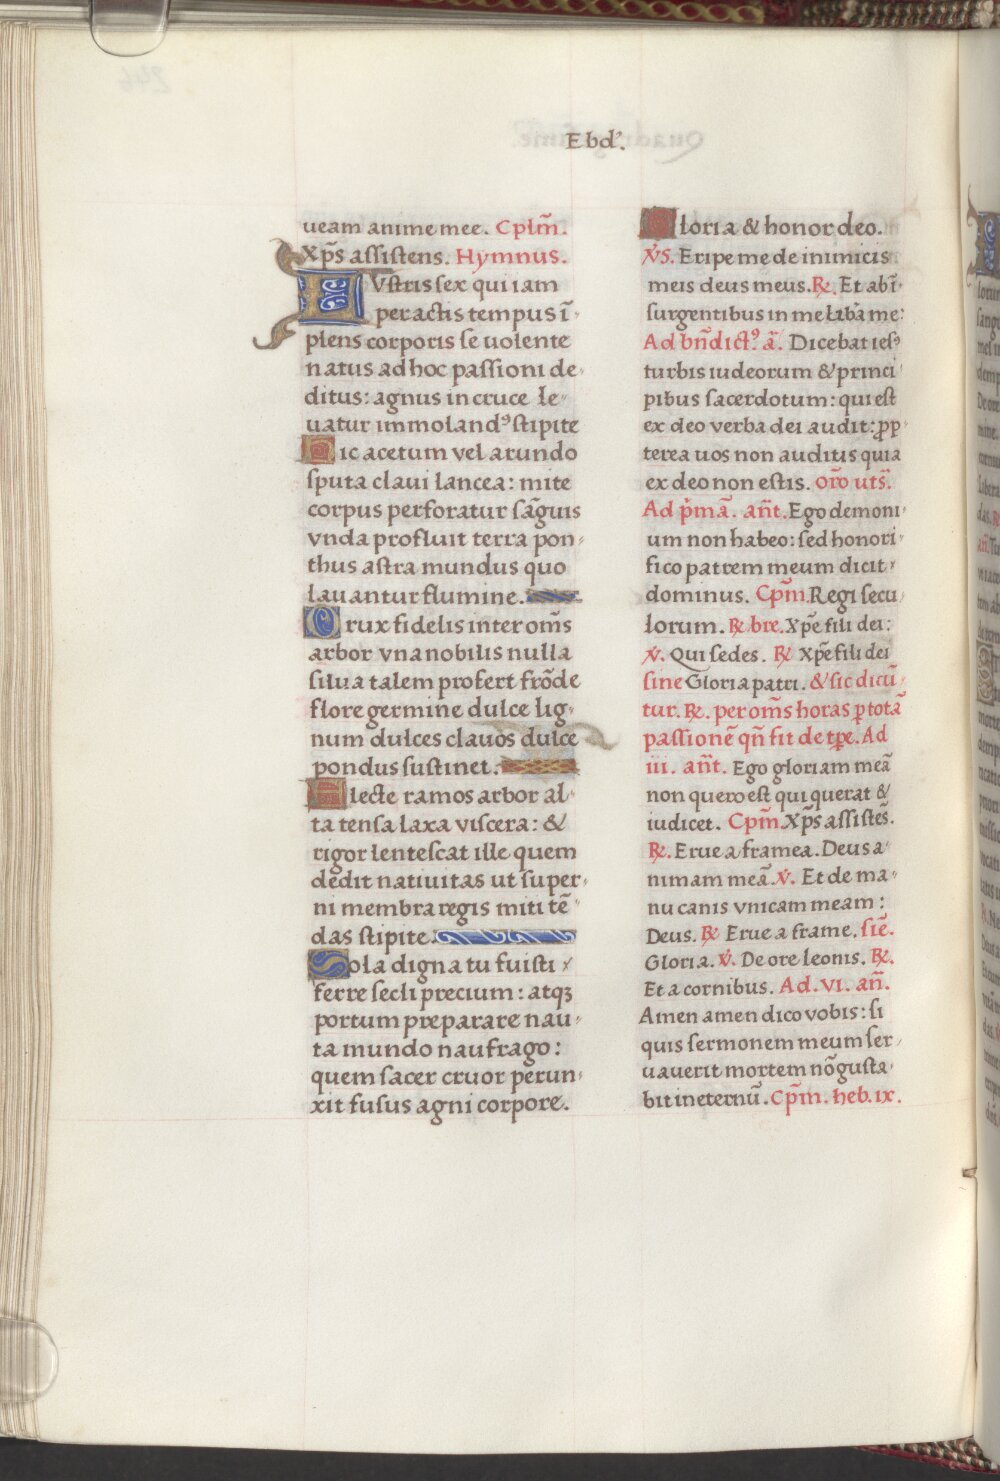 Ebdˀ.
ueam anime mee. Cplm̃.
Xp̃s assistens. Hymnus.
LVstris sex qui iam
peractis tempus ī-
plens corporis se uolente
natus ad hoc passioni de-
ditus: agnus in cruce le-
uatur immolandꝰ stipite
Hic acetum vel arundo
sputa claui lancea: mite
corpus perforatur sãguis
vnda profluit terra pon-
thus astra mundus quo
lauantur flumine.
Crux fidelis inter om̃s
arbor vna nobilis nulla
silua talem profert frõde
flore germine dulce lig-
num dulces clauos dulce
pondus sustinet.
Flecte ramos arbor al-
ta tensa laxa viscera: &
rigor lentescat ille quem
dedit natiuitas ut super-
ni membra regis miti tē-
das stipite.
Sola digna tu fuisti
ferre secli precium: atqꝫ
portum preparare nau-
ta mundo naufrago:
quem sacer cruor perun-
xit fusus agni corpore.
Gloria & honor deo.
V̇S. Eripe me de inimicis
meis deus meus. ℞. Et ab ī-
surgentibus in me liba me:
Ad bñdictꝰ. ã. Dicebat iesꝰ
turbis iudeorum & princi
pibus sacerdotum: qui est
ex deo verba dei audit: ꝓp
terea uos non auditis quia
ex deo non estis. oro uts̃.
Ad p̍mã. añt. Ego demoni-
um non habeo: sed honori-
fico patrem meum dicit
dominus. Cpm̃. Regi secu
lorum. ℞ bre. Xpe fili dei:
℣. Qui sedes. ℞ Xpe fili dei
sine Gloria patri. & sic dicū-
tur. ℞. per om̃s horas ꝑ totã
passionē qñ fit de tpe. Ad
iii. añt. Ego gloriam meã
non quero est qui querat &
iudicet. Cpm̃. Xp̃s assistes̃.
℞. Erue a framea. Deus a-
nimam meã. ℣. Et de ma-
nu canis vnicam meam:
Deus. ℞ Erue a frame. siē.
Gloria. ℣. De ore leonis. ℞.
Et a cornibus. Ad. vi. añ.
Amen amen dico vobis: si
quis sermonem meum ser-
uauerit mortem nõ gusta-
bit in eternũ. Cpm̃. heb. ix.